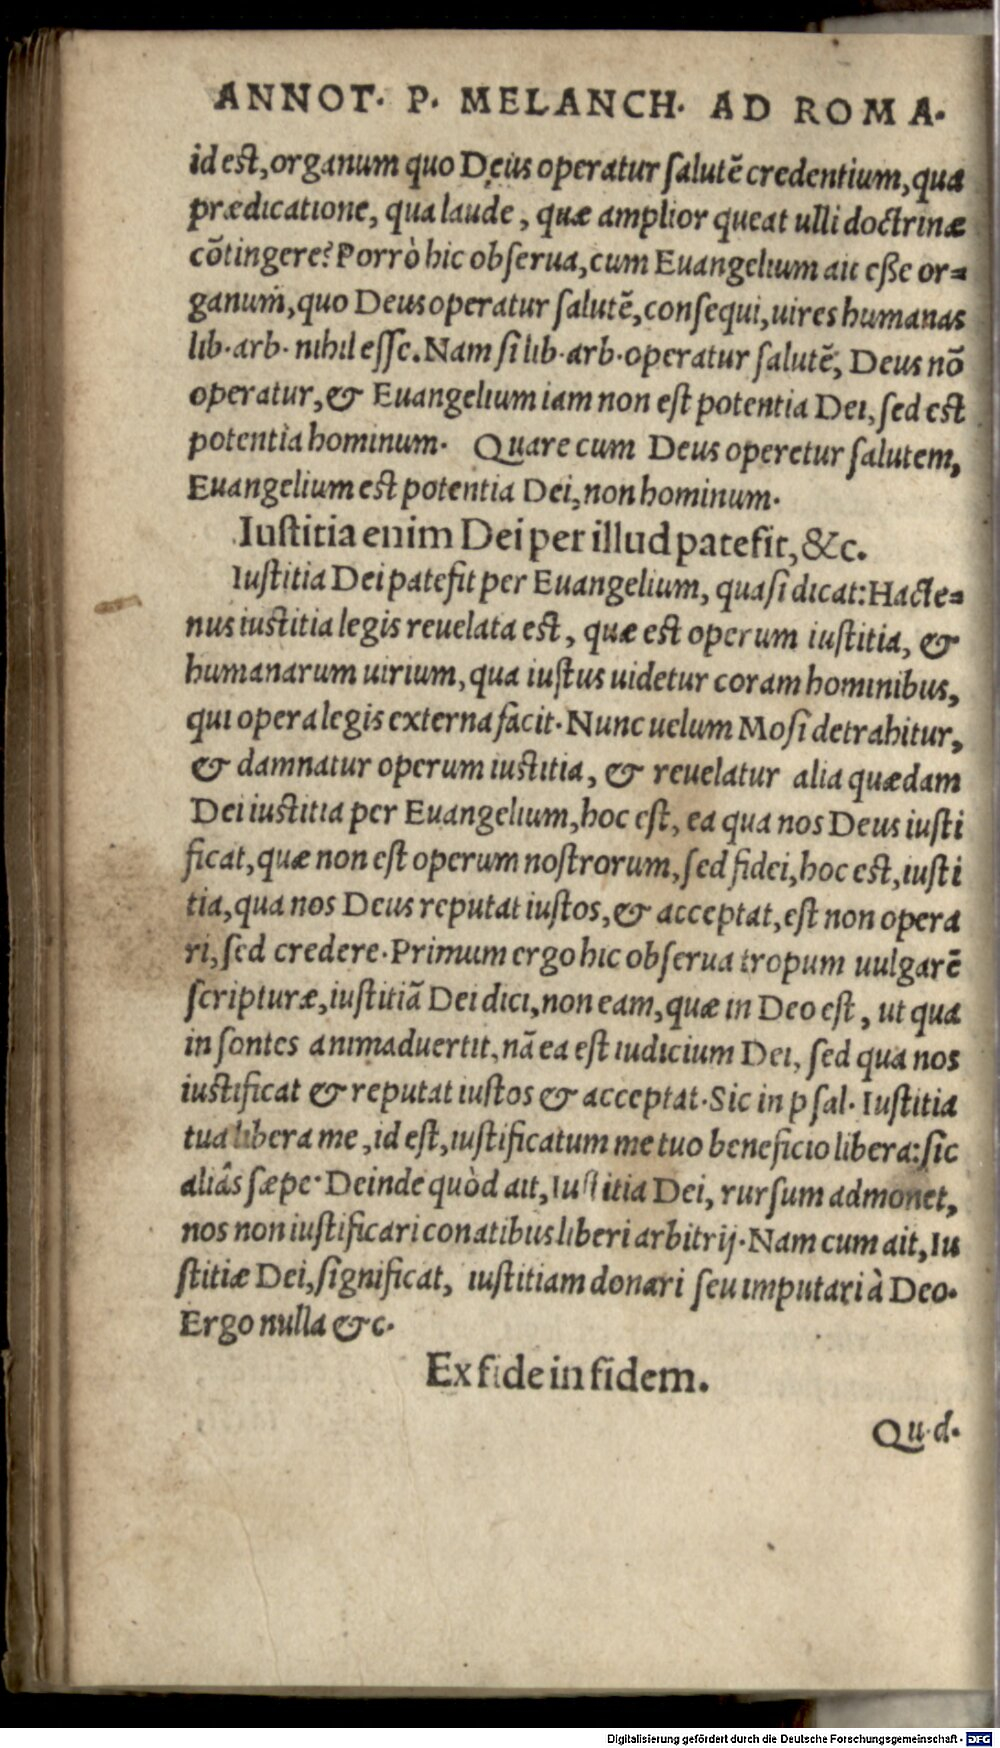 ANNOT. P. MELANCH. AD ROMA.
id est, organum quo Deus operatur salutē credentium, qua
prædicatione, qua laude, quæ amplior queat ulli doctrinæ
cōtingere? Porrò hic obserua, cum Euangelium ait esse or=
ganum, quo Deus operatur salutē, consequi, uires humanas
lib. arb. nihil esse. Nam si lib. arb. operatur salutē, Deus nō
operatur, & Euangelium iam non est potentia Dei, sed est
potentia hominum. Quare cum Deus operetur salutem,
Euangelium est potentia Dei, non hominum.
Iustitia enim Dei per illud patefit, &c.
Iustitia Dei patefit per Euangelium, quasi dicat: Hacte=
nus iustitia legis reuelata est, quæ est operum iustitia, &
humanarum uirium, qua iustus uidetur coram hominibus,
qui opera legis externa facit. Nunc uelum Mosi detrahitur,
& damnatur operum iustitia, & reuelatur alia quædam
Dei iustitia per Euangelium, hoc est, ea qua nos Deus iusti
ficat, quæ non est operum nostrorum, sed fidei, hoc est, iusti
tia, qua nos Deus reputat iustos, & acceptat, est non opera
ri, sed credere. Primum ergo hic obserua tropum uulgarē
scripturæ, iustitiā Dei dici, non eam, quæ in Deo est, ut qua
in sontes animaduertit, nā ea est iudicium Dei, sed qua nos
iustificat & reputat iustos & acceptat. Sic in psal. Iustitia
tua libera me, id est, iustificatum me tuo beneficio libera: sic
aliâs sæpe. Deinde quòd ait, Iustitia Dei, rursum admonet,
nos non iustificari conatibus liberi arbitrij. Nam cum ait, Iu
stitiæ Dei, significat, iustitiam donari seu imputari à Deo.
Ergo nulla &c.
Ex fide in fidem.
Qu.d.
Digitalisierung gefördert durch die Deutsche Forschungsgemeinschaft - DFG